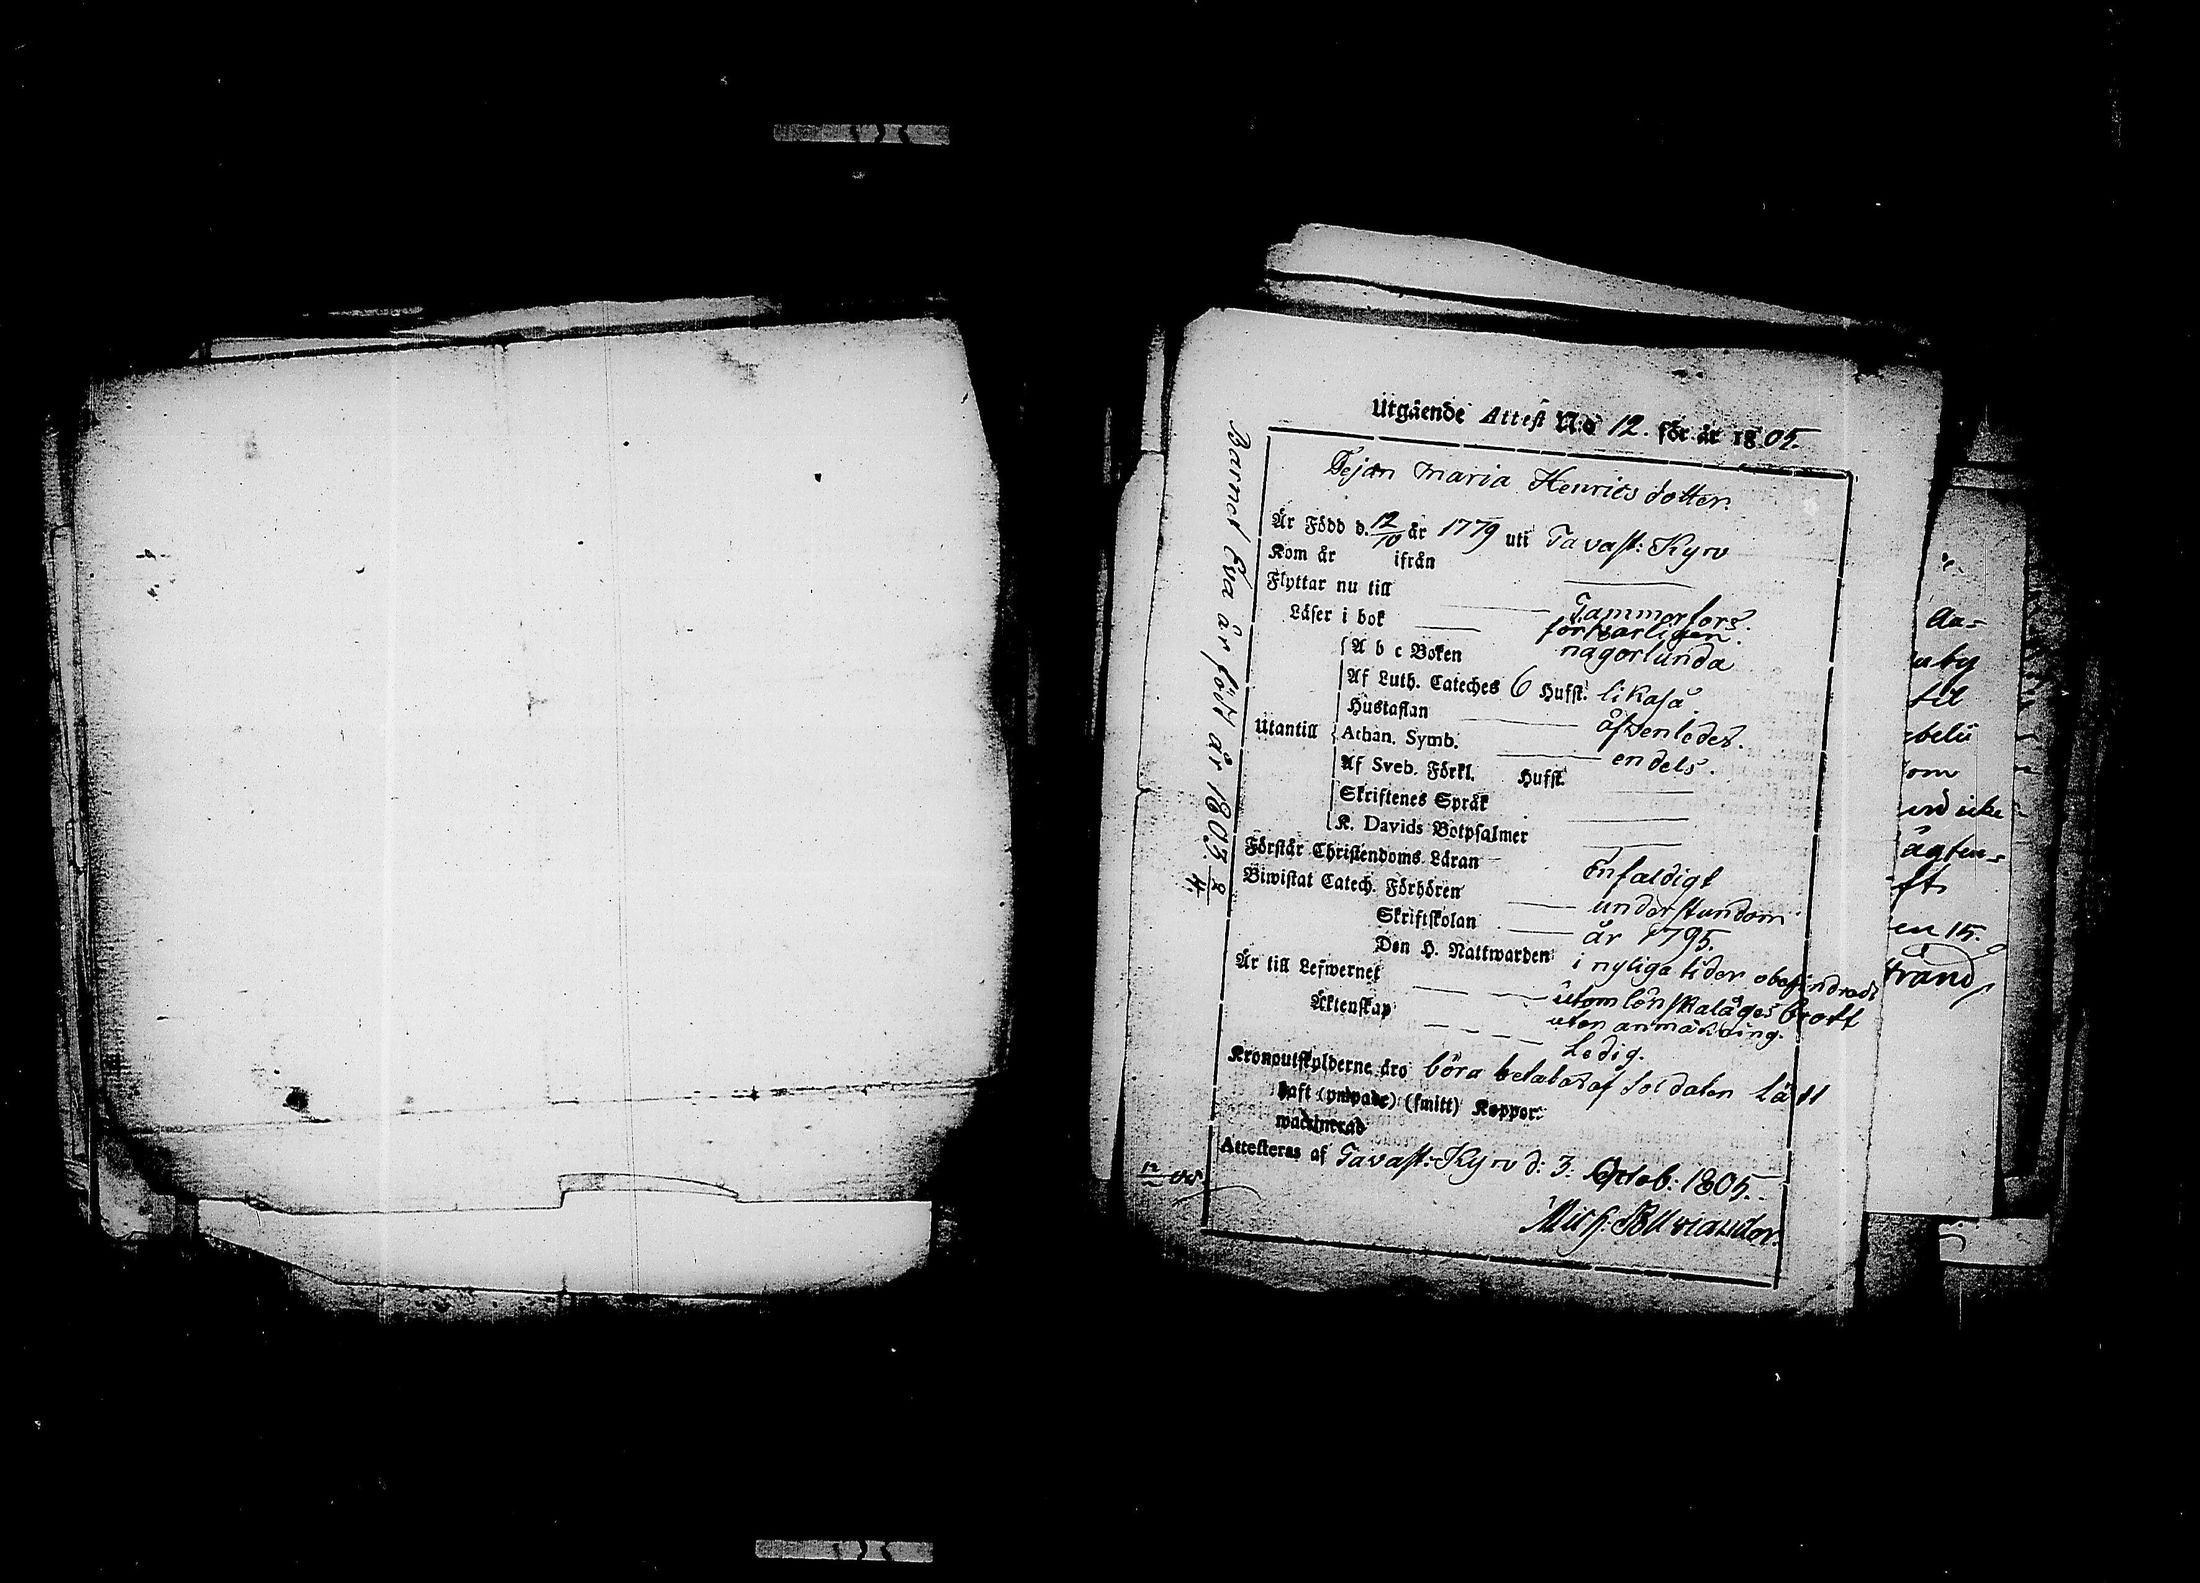 Utgående Attest N:o 12. för år 1805.
Pejan Maria Henrics dotter.
Är Född d. 12/10 år 1779 uti Tavast: Kyro
Kom år ifrån
Flyttar nu till Tammerfors.
Läser i bok försvarligen.
A b c Boken någorlunda
Af Luth. Cateches 6 Hufst. likaså.
Hustaflan åfvenledes.
Utantill Athan. Symb. endels.
Af Sveb. Förkl. Hufst.
Skriftenes Språk
K. Davids Botpsalmer
Förstår Christendoms Läran Enfaldigt
Biwistat Catech. Förhören understundom
Skriftskolan år 1795.
Den H. Nattwarden i nyliga tider obehindradt
Är till Lefwernet utom lönskaläges brott
utan anmärkning.
Äktenskap Ledig.
Kronoutskylderne äro böra betalas af Soldaten Lätt
haft (ympade) (smitt) Koppor.
waccinerad
Attesteras af Tavast: Kyro d: 3. Octob: 1805.
Barnet Eva är född år 1803 2/4.
Aa=
til
om
en 15.